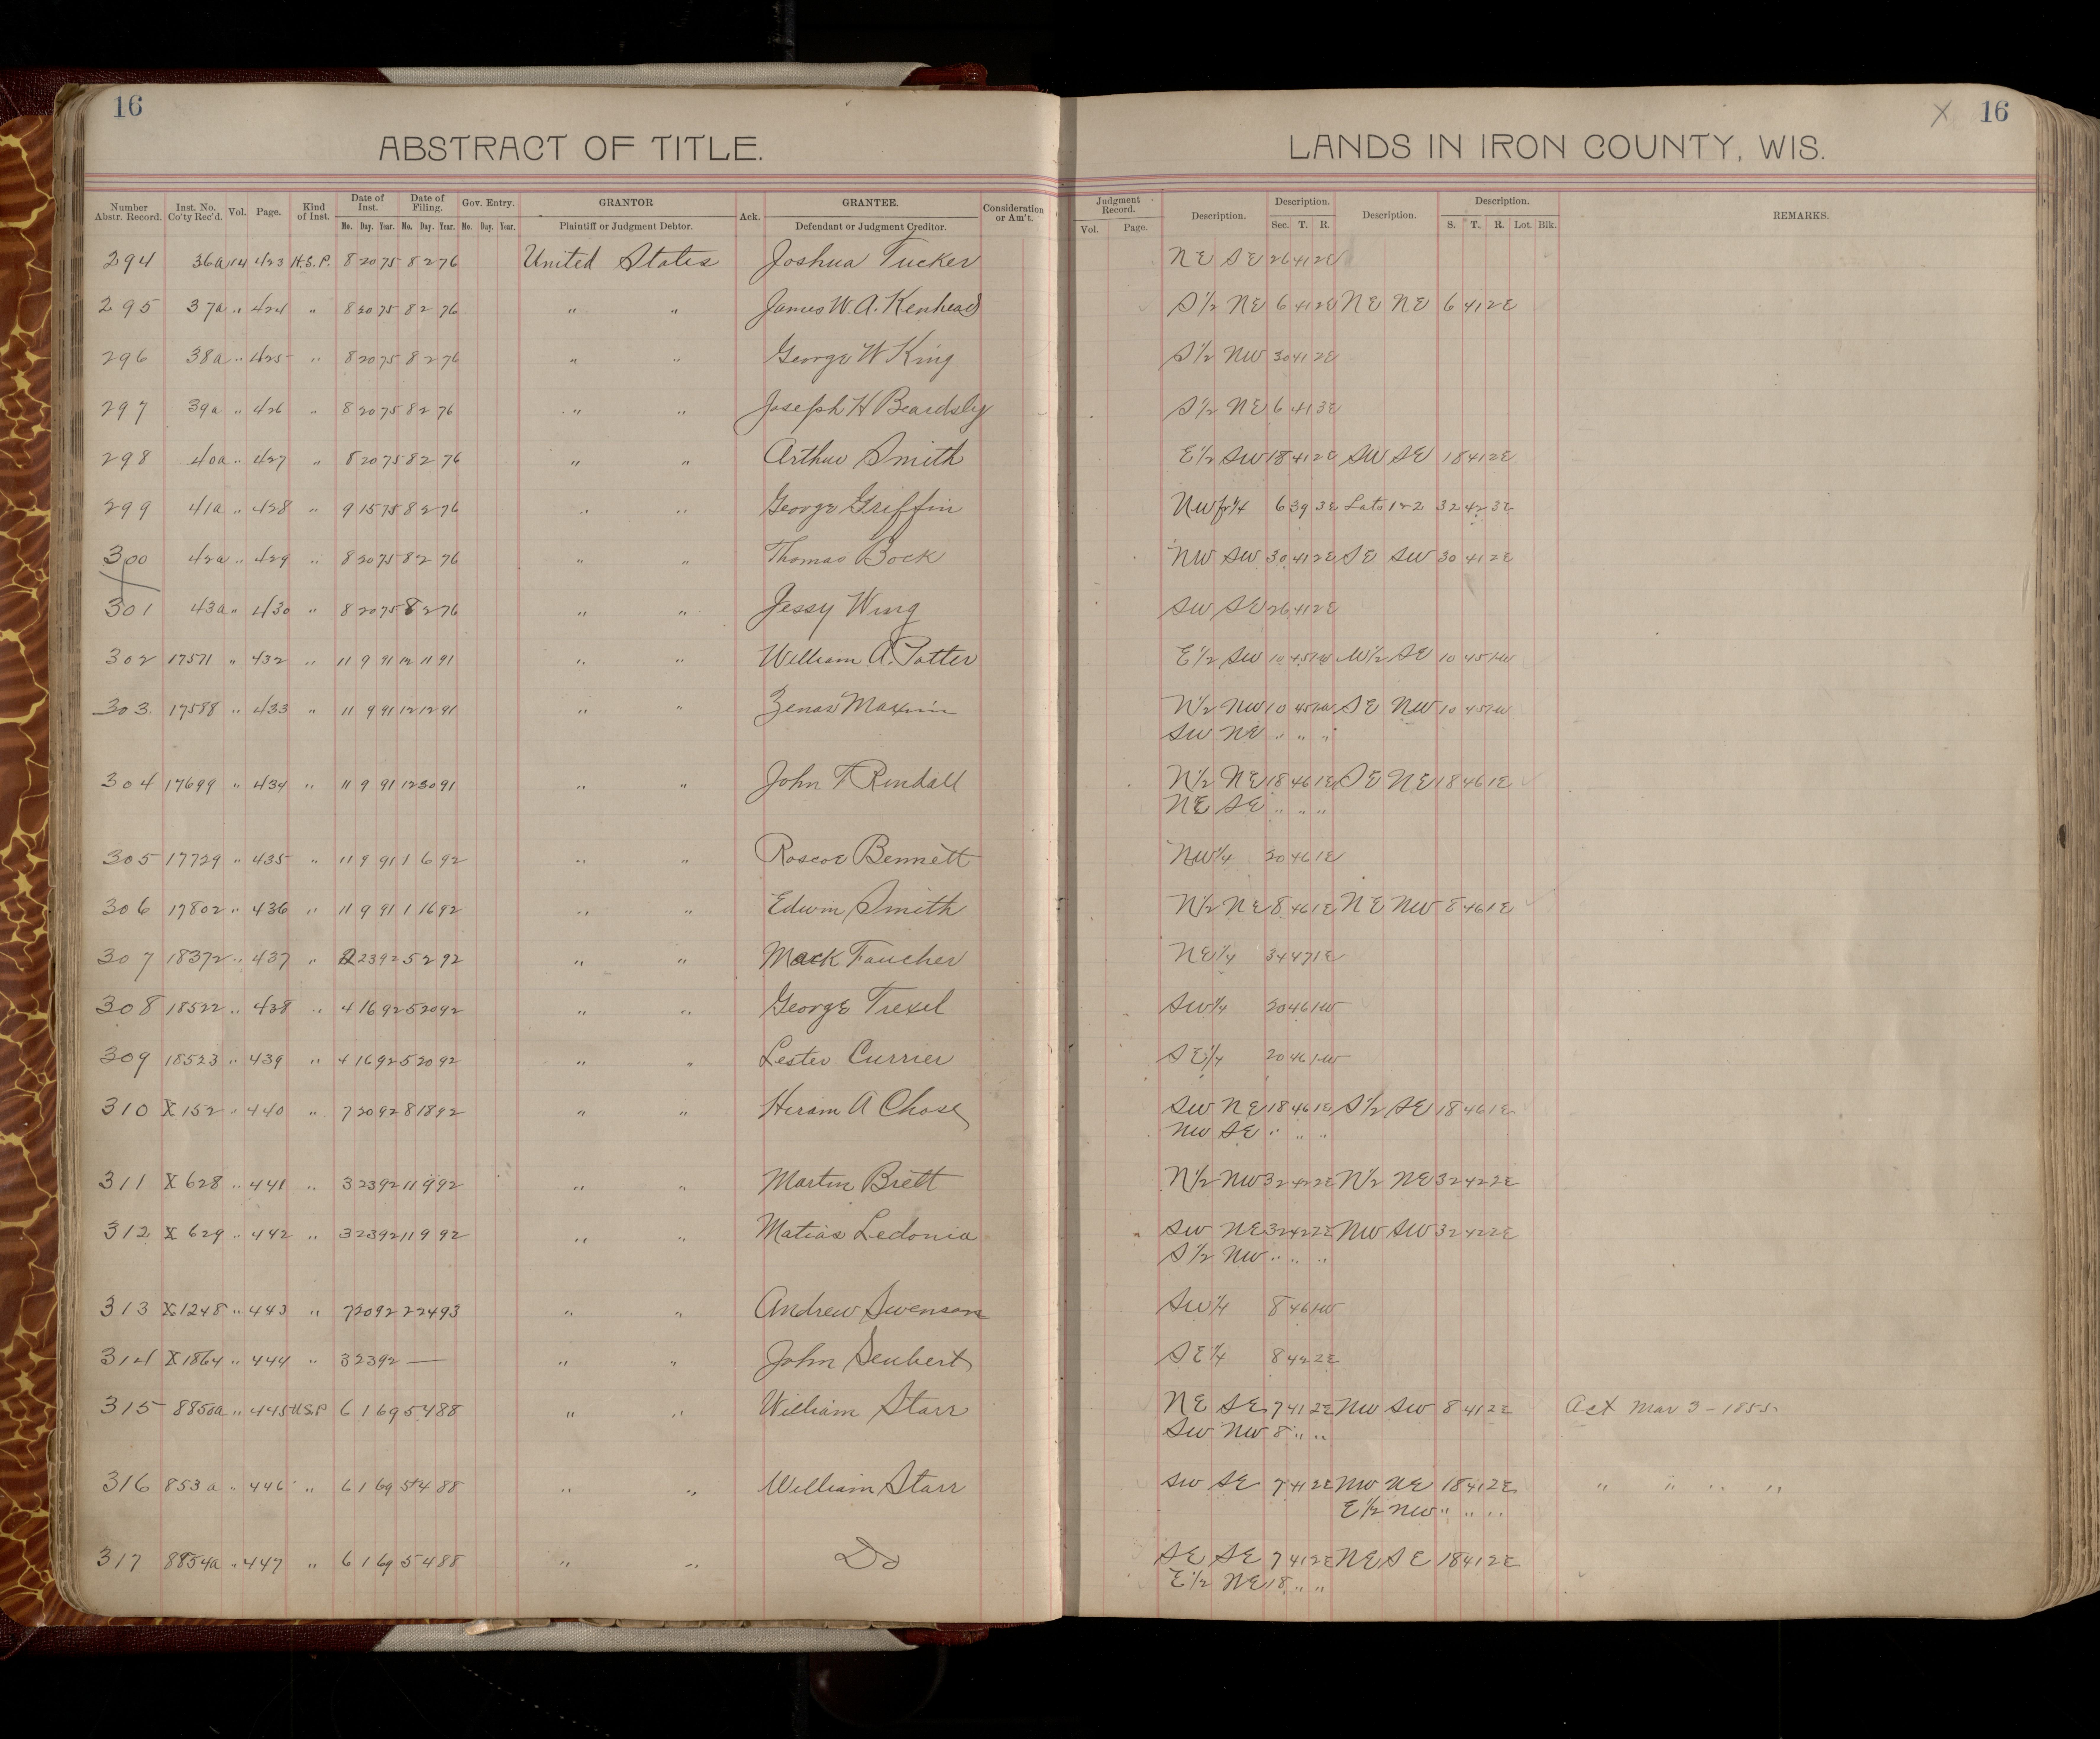 16
ABSTRACT OF TITLE.
Number Abstr. Record. Inst. No. Co'ty Rec'd. Vol. Page. Kind of Inst. Date of Inst. Mo. Day. Year. Date of Filing. Mo. Day. Year. Gov. Entry. Mo. Day. Year. GRANTOR Plaintiff or Judgment Debtor. Ack. GRANTEE. Defendant or Judgment Creditor. Consideration or Am't.
294 36a 14 423 H.S.P. 8 20 75 8 2 76 United States Joshua Tucker
295 37a " 424 " 8 20 75 8 2 76 " " James W. A. Kenhead
296 38a " 425 " 8 20 75 8 2 76 " " George W King
297 39a " 426 " 8 20 75 8 2 76 " " Joseph H Beardsley
298 40a " 427 " 8 20 75 8 2 76 " " Arthur Smith
299 41a " 428 " 9 15 75 8 2 76 " " George Griffin
300 42a " 429 " 8 20 75 8 2 76 " " Thomas Bock
301 43a " 430 " 8 20 75 8 2 76 " " Jessy Wing
302 17571 " 432 " 11 9 91 12 11 91 " " William A. Potter
303 17588 " 433 " 11 9 91 12 12 91 " " Zenas Maxim
304 17699 " 434 " 11 9 91 12 30 91 " " John T Rendall
305 17729 " 435 " 11 9 91 1 6 92 " " Roscoe Bennett
306 17802 " 436 " 11 9 91 1 16 92 " " Edwin Smith
307 18372 " 437 " 2 23 92 5 2 92 " " Mack Faucher
308 18522 " 438 " 4 16 92 5 20 92 " " George Trexel
309 18523 " 439 " 4 16 92 5 20 92 " " Lester Currier
310 X 152 " 440 " 7 20 92 8 18 92 " " Hiram A Chase
311 X 628 " 441 " 3 23 92 11 9 92 " " Martin Brett
312 X 629 " 442 " 3 23 92 11 9 92 " " Matias Ledonia
313 X 1248 " 443 " 7 20 92 2 24 93 " " Andrew Swenson
314 X 1864 " 444 " 3 23 92 — " " John Seubert
315 8850a " 445 U.S.P 6 1 69 5 4 88 " " William Starr
316 853a " 446 " 6 1 69 5 4 88 " " William Starr
317 8854a " 447 " 6 1 69 5 4 88 " " Do
X 16
LANDS IN IRON COUNTY, WIS.
Judgment Record. Vol. Page. Description. Description. Sec. T. R. Description. Description. S. T. R. Lot. Blk. REMARKS.
NE SE 26 41 2E
S½ NE 6 41 2E NE NE 6 41 2E
S½ NW 30 41 2E
S½ NE 6 41 3E
E½ SW 18 41 2E SW SE 18 41 2E
NW fr ¼ 6 39 3E Lots 1 & 2 32 42 3E
NW SW 30 41 2E SE SW 30 41 2E
SW SE 26 41 2E
E½ SW 10 45 1W W½ SE 10 45 1W
N½ NW 10 45 1W SE NW 10 45 1W
SW NE " " "
N½ NE 18 46 1E SE NE 18 46 1E
NE SE " " "
NW¼ 20 46 1E
N½ NE 8 46 1E NE NW 8 46 1E
NE¼ 34 47 1E
SW¼ 20 46 1W
SE¼ 20 46 1W
SW NE 18 46 1E S½ SE 18 46 1E
NW SE " " "
N½ NW 32 42 2E N½ NE 32 42 2E
SW NE 32 42 2E NW SW 32 42 2E
S½ NW " " "
SW¼ 8 46 1W
SE¼ 8 42 2E
NE SE 7 41 2E NW SW 8 41 2E Act Mar 3 - 1855.
SW NW 8 " "
SW SE 7 41 2E NW NE 18 41 2E " " " "
E½ NW " " "
SE SE 7 41 2E NE SE 18 41 2E
E½ NE 18 " "